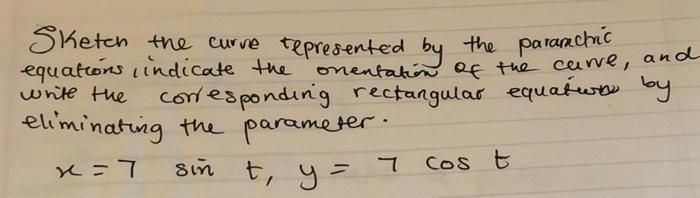 Sketch the curve represented by the parametric
equations, indicate the orientation of the curve, and
write the corresponding rectangular equation by
eliminating the parameter.
x = 7 sin t, y = 7 cos t